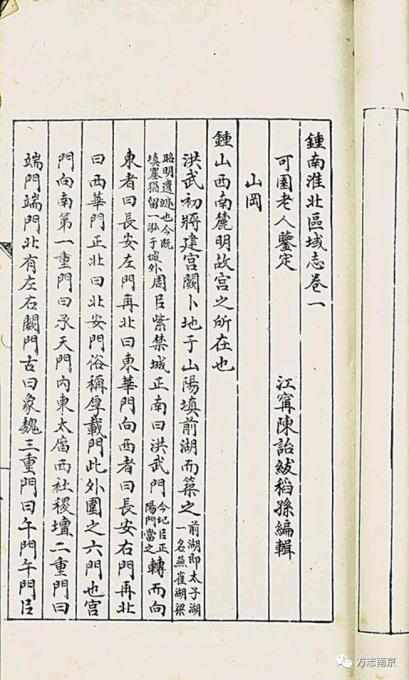 鍾南淮北區域志卷一
可園老人鑒定 江甯陳詒紱稻孫編輯
山岡
鍾山西南麓明故宮之所在也
洪武初將建宮闕卜地于山陽填前湖而築之 前湖即太子湖一名燕雀湖梁
昭明遺跡也今既填塞猶留一泓于城外 周㠯紫禁城正南曰洪武門 今地㠯正陽門當之 轉而向
東者曰長安左門再北曰東華門向西者曰長安右門再北
曰西華門正北曰北安門俗稱厚載門此外圍之六門也宮
門向南第一重門曰承天門內東太庿西社稷壇二重門曰
端門端門北有左右闕門古曰象魏三重門曰午門午門㠯
方志南京